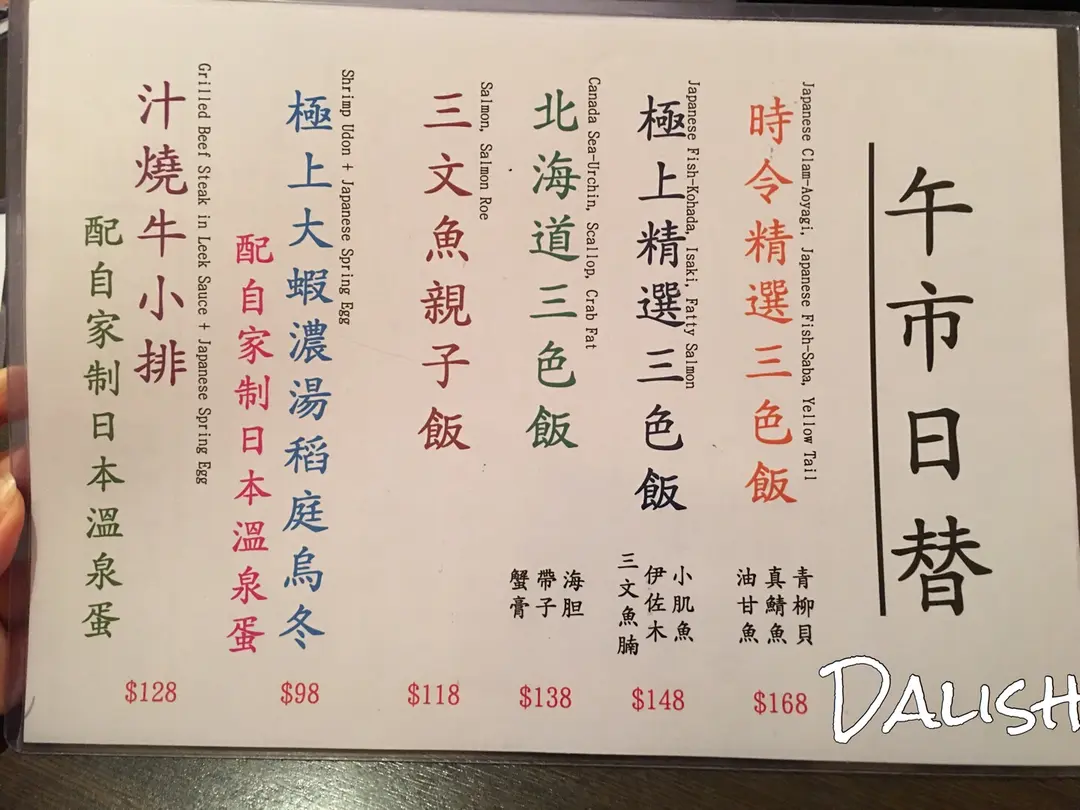 午市日替
Japanese Clam-Aoyagi, Japanese Fish-Saba, Yellow Tail
時令精選三色飯
青柳貝
真鯖魚
油甘魚
$168
Japanese Fish-Kohada, Isaki, Fatty Salmon
極上精選三色飯
小肌魚
伊佐木
三文魚腩
$148
Canada Sea-Urchin, Scallop, Crab Fat
北海道三色飯
海胆
帶子
蟹膏
$138
Salmon, Salmon Roe
三文魚親子飯
$118
Shrimp Udon + Japanese Spring Egg
極上大蝦濃湯稻庭烏冬
配自家制日本溫泉蛋
$98
Grilled Beef Steak in Leek Sauce + Japanese Spring Egg
汁燒牛小排
配自家制日本溫泉蛋
$128
DALISH